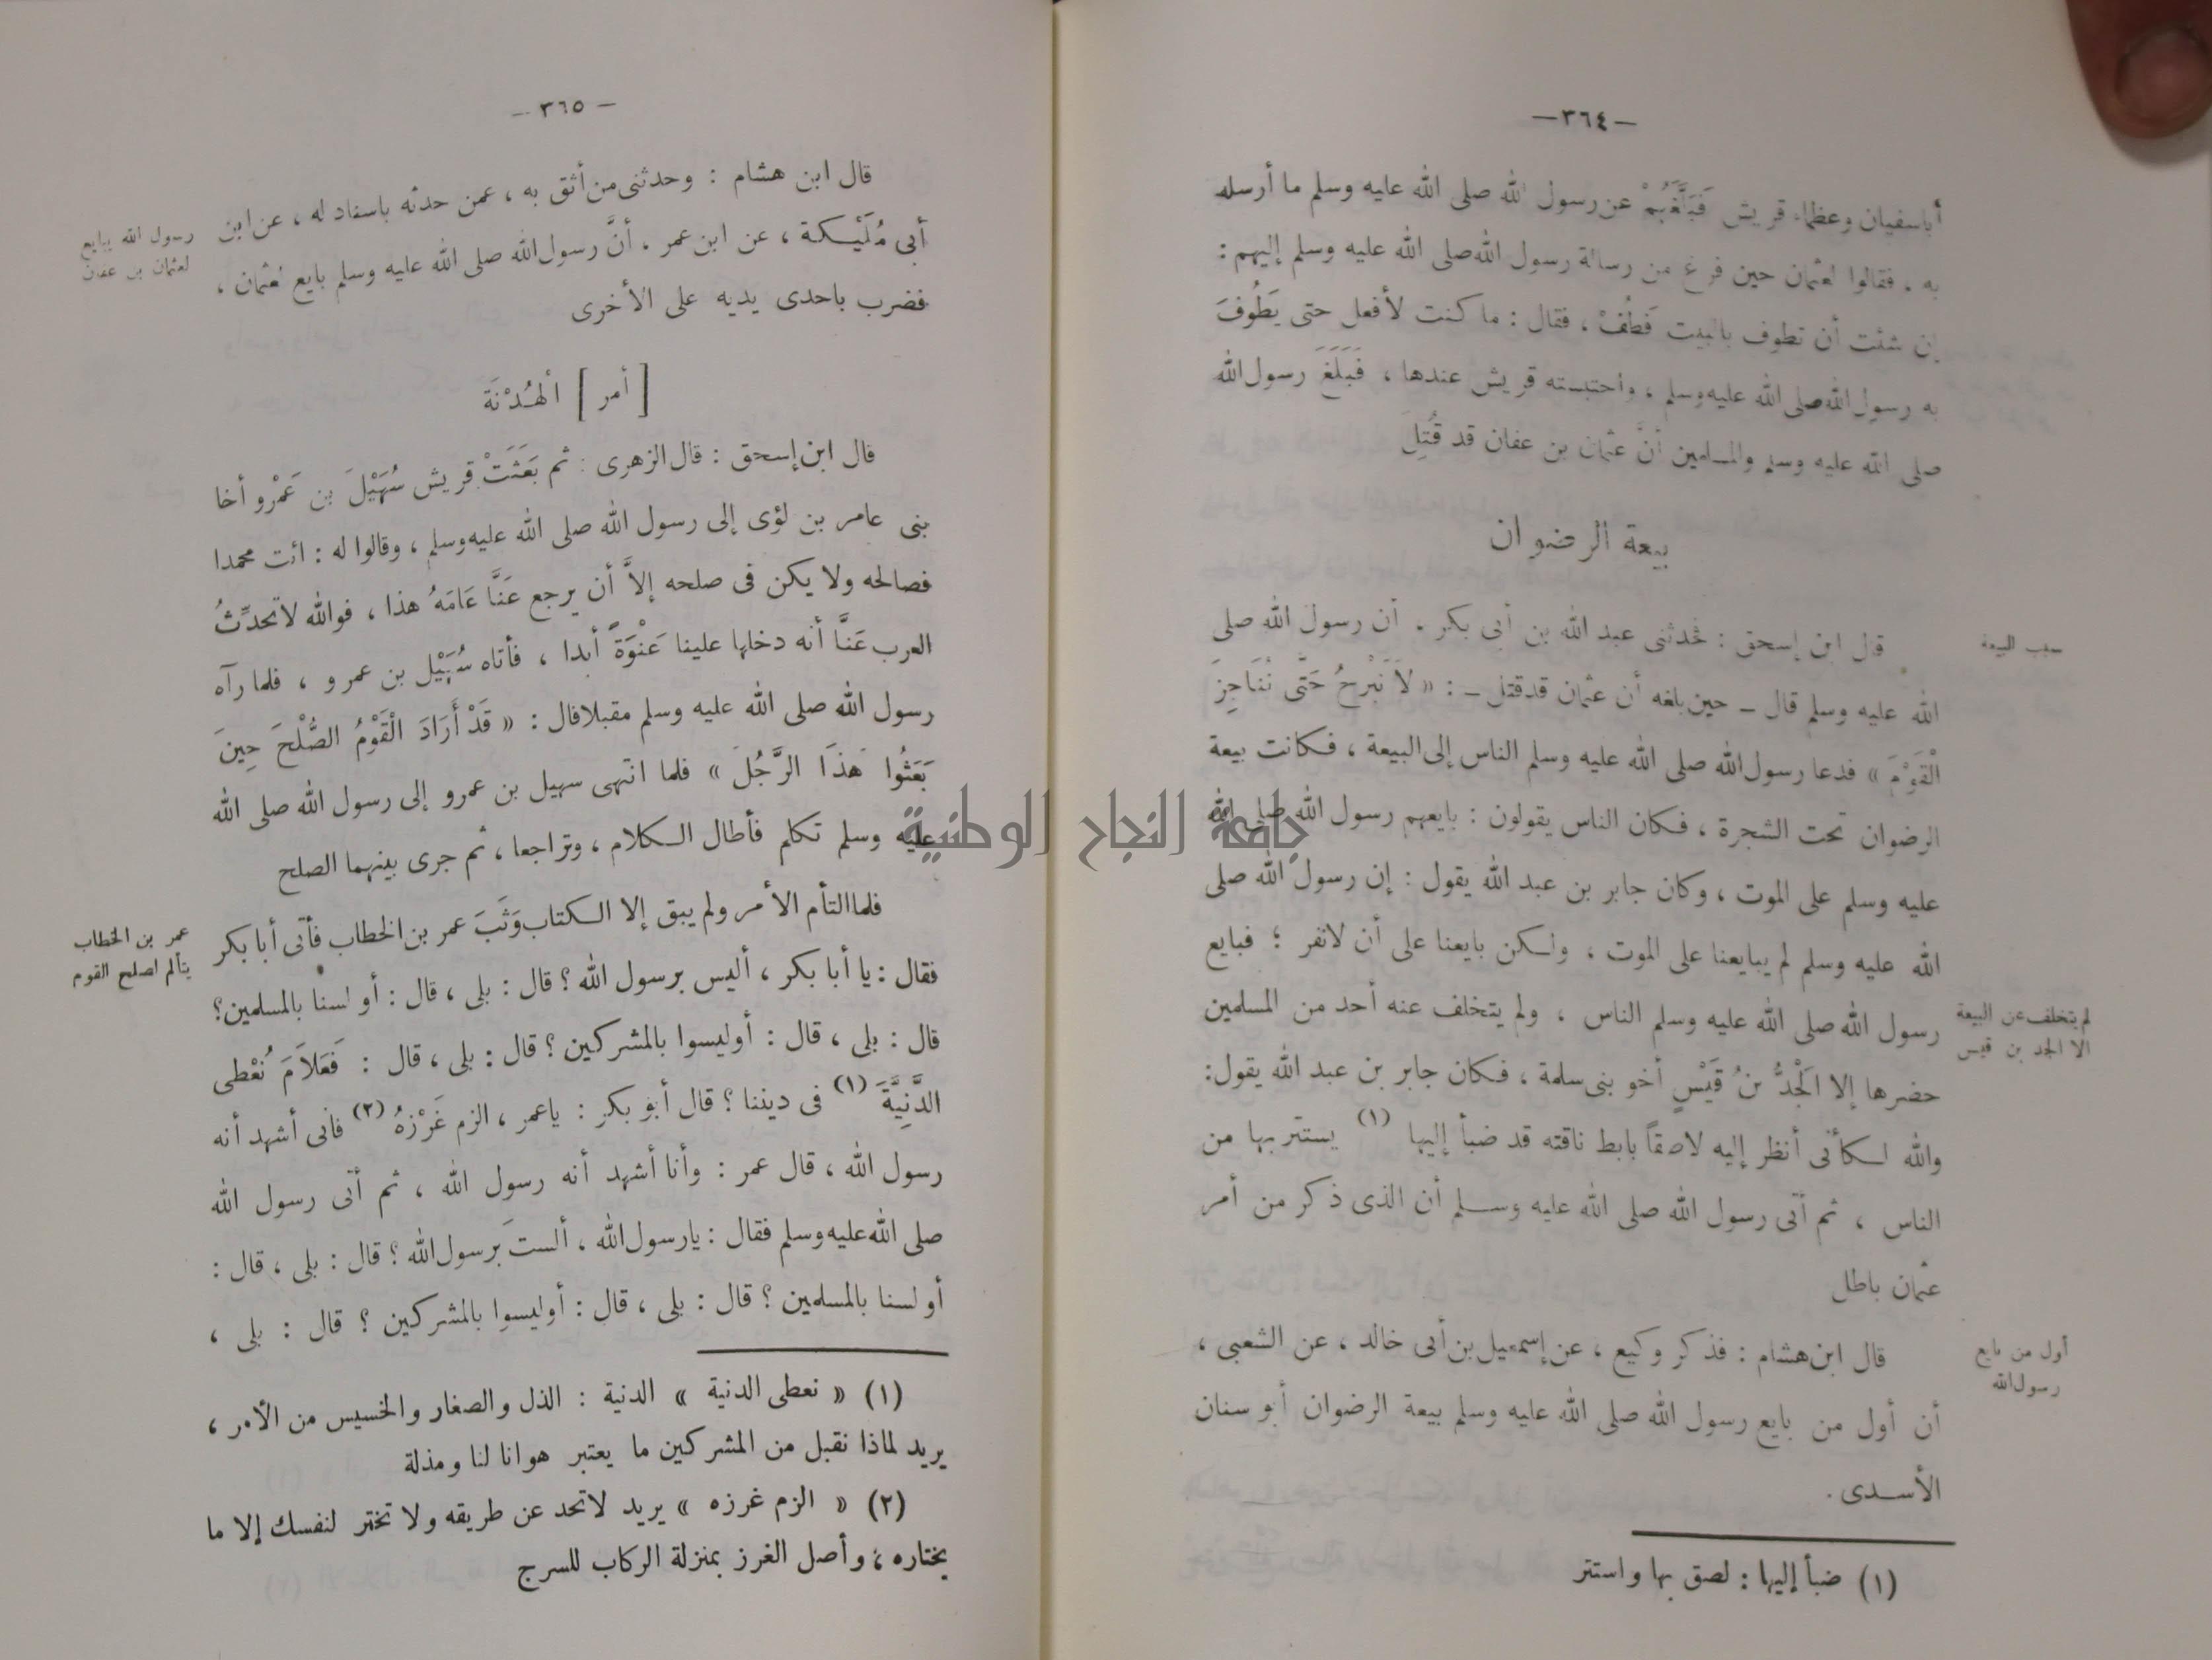 —٣٦٤—
أباسفيان وعظماء قريش فَبَلَّغَهُمْ عن رسول الله صلى الله عليه وسلم ما أرسله
به . فقالوا لعثمان حين فرغ من رسالة رسول الله صلى الله عليه وسلم إليهم :
إن شئت أن تطوف بالبيت فَطُفْ ، فقال : ما كنت لأفعل حتى يَطُوفَ
به رسول الله صلى الله عليه وسلم ، واحتبسته قريش عندها ، فَبَلَغَ رسول الله
صلى الله عليه وسلم والمسلمين أنَّ عثمان بن عفان قد قُتِلَ
بيعة الرضوان
قال ابن إسحق : فحدثنى عبد الله بن أبى بكر . أن رسول الله صلى
سبب البيعة
الله عليه وسلم قال – حين بلغه أن عثمان قد قتل – : « لاَ نَبْرَحُ حَتَّى نُنَاجِزَ
الْقَوْمَ » فدعا رسول الله صلى الله عليه وسلم الناس إلى البيعة ، فكانت بيعة
الرضوان تحت الشجرة ، فكان الناس يقولون : بايعهم رسول الله صلى الله
عليه وسلم على الموت ، وكان جابر بن عبد الله يقول : إن رسول الله صلى
الله عليه وسلم لم يبايعنا على الموت ، ولكن بايعنا على أن لانفر ؛ فبايع
رسول الله صلى الله عليه وسلم الناس ، ولم يتخلف عنه أحد من المسلمين
لم يتخلف عن البيعة
الا الجد بن قيس
حضرها إلا الْجَدُّ بْنُ قَيْسٍ أخو بنى سلمة ، فكان جابر بن عبد الله يقول :
والله لكأنى أنظر إليه لاصقاً بابط ناقته قد ضبأ إليها (١) يستتر بها من
الناس ، ثم أتى رسول الله صلى الله عليه وسلم أن الذى ذكر من أمر
عثمان باطل
قال ابن هشام : فذكر وكيع ، عن إسمعيل بن أبى خالد ، عن الشعبى ،
أول من بايع
رسول الله
أن أول من بايع رسول الله صلى الله عليه وسلم بيعة الرضوان أبو سنان
الأسدى .
(١) ضبأ إليها : لصق بها واستتر
— ٣٦٥ —
قال ابن هشام : وحدثنى من أثق به ، عمن حدثه باسناد له ، عن ابن
أبى مُلَيْكة ، عن ابن عمر ، أنَّ رسول الله صلى الله عليه وسلم بايع لعُثمان ،
رسول الله يبايع
لعثمان بن عفان
فضرب باحدى يديه على الأخرى
[ أمر ] الْهُدْنَة
قال ابن إسحق : قال الزهرى : ثم بَعَثَتْ قريش سُهَيْلَ بن عَمْرو أخا
بنى عامر بن لؤى إلى رسول الله صلى الله عليه وسلم ، وقالوا له : ائت محمدا
فصالحه ولا يكن فى صلحه إلاَّ أن يرجع عَنَّا عَامَهُ هذا ، فوالله لا تحدِّثُ
العرب عَنَّا أنه دخلها علينا عَنْوَةً أبدا ، فأتاه سُهَيْل بن عمرو ، فلما رآه
رسول الله صلى الله عليه وسلم مقبلا قال : « قَدْ أَرَادَ الْقَوْمُ الصُّلْحَ حِينَ
بَعَثُوا هَذَا الرَّجُلَ » فلما انتهى سهيل بن عمرو إلى رسول الله صلى الله
عليه وسلم تكلم فأطال الكلام ، وتراجعا ، ثم جرى بينهما الصلح
فلما التأم الأمر ولم يبق إلا الكتاب وَثَبَ عمر بن الخطاب فأتى أبا بكر
عمر بن الخطاب
يتألم لصلح القوم
فقال : يا أبا بكر ، أليس برسول الله ؟ قال : بلى ، قال : أو لسنا بالمسلمين؟
قال : بلى ، قال : أوليسوا بالمشركين ؟ قال : بلى ، قال : فَعَلاَمَ نُعْطى
الدَّنِيَّةَ (١) فى ديننا ؟ قال أبو بكر : ياعمر ، الزم غَرْزهُ (٢) فانى أشهد أنه
رسول الله ، قال عمر : وأنا أشهد أنه رسول الله ، ثم أتى رسول الله
صلى الله عليه وسلم فقال : يارسول الله ، ألستَ برسول الله ؟ قال : بلى ، قال :
أو لسنا بالمسلمين ؟ قال : بلى ، قال : أوليسوا بالمشركين ؟ قال : بلى ،
(١) « نعطى الدنية » الدنية : الذل والصغار والخسيس من الأمر ،
يريد لماذا نقبل من المشركين ما يعتبر هوانا لنا ومذلة
(٢) « الزم غرزه » يريد لاتحد عن طريقه ولا تختر لنفسك إلا ما
يختاره ، وأصل الغرز بمنزلة الركاب للسرج
جامعة النجاح الوطنية